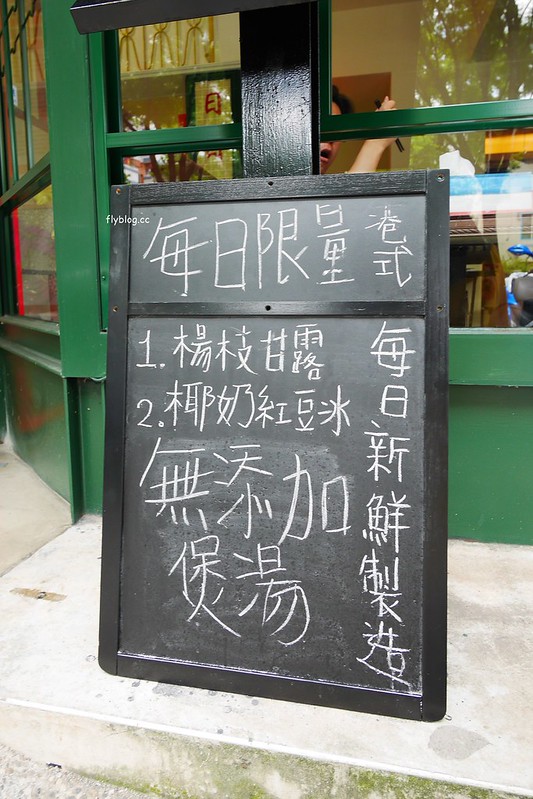 flyblog.cc
日
每日限量
港式
1. 楊枝甘露
2. 椰奶紅豆冰
無添加
煲湯
每日新鮮製造